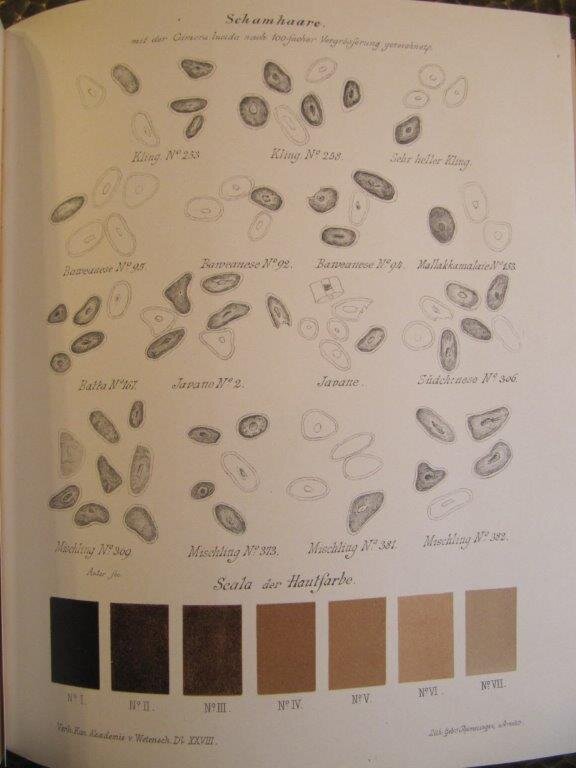 Schamhaare.
mit der Camera lucida nach 100-facher Vergrösserung gezeichnet.
Kling. Nº 253
Kling. Nº 258.
Sehr heller Kling.
Baweanese Nº 95.
Baweanese Nº 92.
Baweanese Nº 94.
Mallakkamalaie Nº 153.
Batta Nº 167.
Javane Nº 2.
Javane.
Südchinese Nº 306.
Mischling Nº 309.
Mischling Nº 373.
Mischling Nº 381.
Mischling Nº 382.
Autor
Scala der Hautfarbe.
Nº I.
Nº II.
Nº III.
Nº IV.
Nº V.
Nº VI.
Nº VII.
Verh. Kon. Akademie v. Wetensch. Dl. XXVIII.
Lith. Gebr.